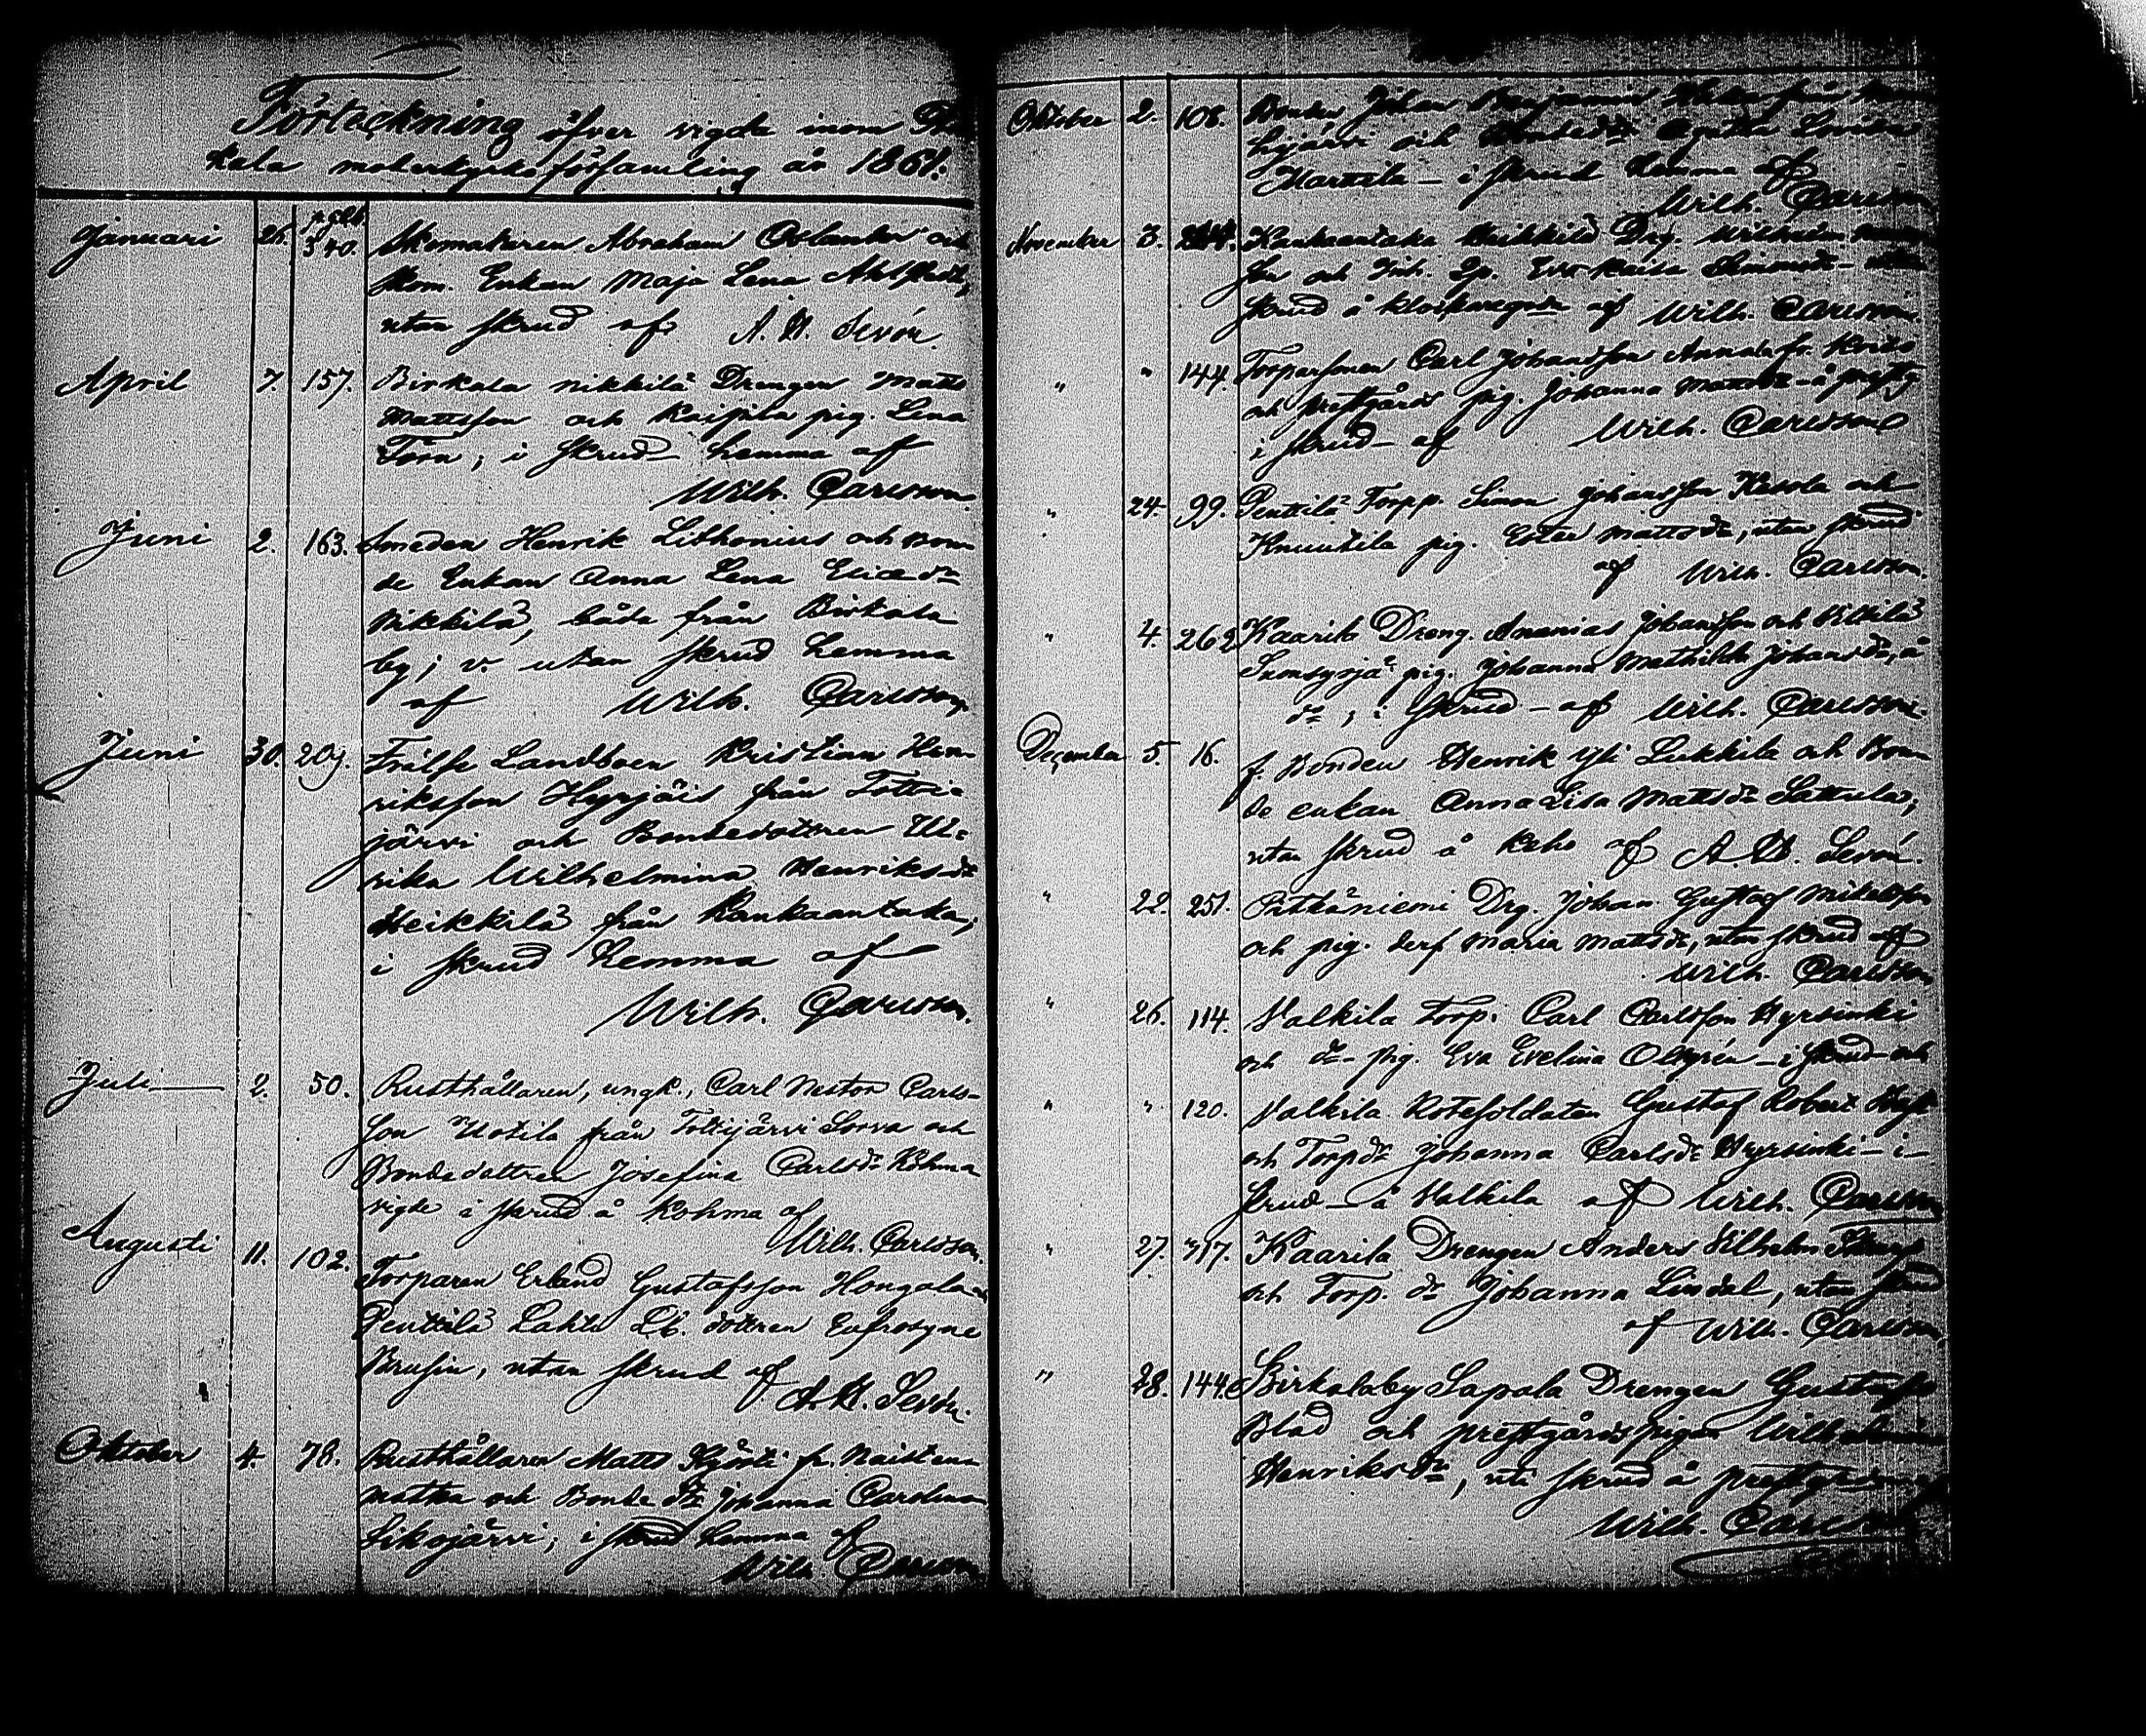 Förteckning öfver vigde inom Bir-
kala moderkyrko församling år 1861.
pag. Cb.
Januari 26. 540. Skomakaren Abraham Oslander och
Skom. Enkan Maja Lena Ahlstedt,
utan skrud af A. H. Sevón.
April 7. 157. Birkala Nikkilä Drengen Matts
Mattsson och Kaipila pig. Lena
Törn; i skrud hemma af
Wilh. Carlsson
Juni 2. 163. Smeden Henrik Lithonius och bon-
de Enkan Anna Lena Eliædr
Nikkilä, båda från Birkala
by; v. utan skrud hemma
af Wilh. Carlsson.
Juni 30. 209. Frälse Landboen Kristian Hen-
riksson Hyrjäis från Totti-
järvi och Bondedottren Ul-
rika Wilhelmina Henriksdr
Heikkilä från Kankaantaka;
i skrud hemma af
Wilh. Carlsson.
Juli 2. 50. Rusthållaren, ungk., Carl Nestor Carls-
son Uotila från Tottijärvi Sorva och
Bondedottren Josefina Carlsdr Kohma
vigde i skrud å Kohma af
Wilh. Carlsson.
Augusti 11. 102. Torparen Erland Gustafsson Hongola
Penttilä Lahti Lb. dottren Eufrosyne
Brusin, utan skrud af
A. H. Sevón.
Oktober 4. 78. Rusthållaren Matts fr. Naisten-
matka och Bonde dr Johanna Carolina
Sikojärvi; i skrud hemma af
Wilh. Carlsson
Oktober 2. 108. Bonden Johan Benjamin från
och Bondedr Agatha Lovisa
Marttila - i skrud hemma af
Wilh. Carlsson
November 3. Kankaantaka Heikkilä Drg. Wilhelm
son och Inh. Eva Kaisa Simonsdr - utan
skrud å klockaregår af Wilh. Carlsson.
" " 144. Torparsonen Carl Johansson Annala fr.
och prestgårds pig. Johanna Mattsdr - å prestg
i skrud - af Wilh. Carlsson
" 24. 99. Penttilä Torpp. Simon Johansson Kesola och
Knuutila pig. Ester Mattsdr, utan skrud
af Wilh. Carlsson.
" 4. 262 Kaarila Dreng. Ananias Johansson och Kilkilä
pig. Johanna Mathilda Johansdr, å
dr; i skrud - af Wilh. Carlsson.
December 5. 16. f. Bonden Henrik Yli Lukkila och Bon-
de enkan Anna Lisa Mattsdr Sattula,
utan skrud å Keho af A. H. Sevón.
" 22. 251. Pitkäniemi Drg. Johan Gustaf Mikelsson
och pig. derf. Maria Mattsdr, utan skrud af
Wilh. Carlsson
" 26. 114. Nalkila Torp. Carl Carlsson Hyrsinki
och dr - pig. Eva Evelina - i skrud och
" " 120. Nalkila Rotesoldaten Gustaf Robert
och Torpdr Johanna Carlsdr Hyrsinki - i -
skrud - å Nalkila af Wilh. Carlsson
" 27. 317. Kaarila Drengen Anders Vilhelm
och Torp. dr Johanna Lindel, utan skrud
af Wilh. Carlsson
" 28. 144. Birkalaby Sapala Drengen Gustaf
Blad och prestgårdspigan Wilhelmina
Henriksdr, uti skrud å prestgården
Wilh. Carlsson